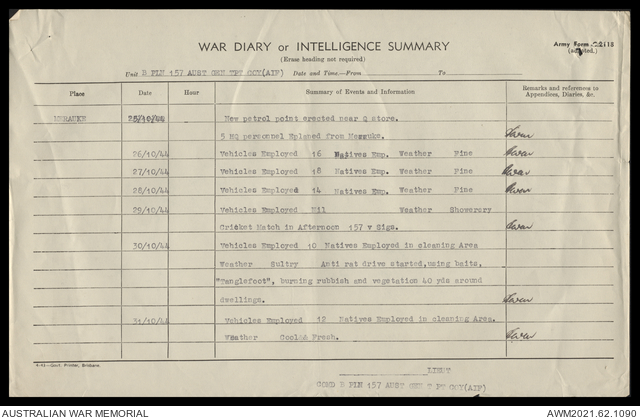 WAR DIARY or INTELLIGENCE SUMMARY
(Erase heading not required)
Army Form C2118
(adapted.)
Unit B PLN 157 AUST GEN TPT COY(AIF) Date and Time.—From To
Place Date Hour Summary of Events and Information Remarks and references to Appendices, Diaries, &c.
MERAUKE 25/10/44 New petrol point erected near Q Store.
5 HQ personnel Eplaned from
26/10/44 Vehicles Employed 16 Natives Emp. Weather Fine
27/10/44 Vehicles Employed 18 Natives Emp. Weather Fine
28/10/44 Vehicles Employed 14 Natives Emp. Weather Fine
29/10/44 Vehicles Employed Nil Weather Showerery
Cricket Match in Afternoon 157 v Sigs.
30/10/44 Vehicles Employed 10 Natives Employed in cleaning Area
Weather Sultry Anti rat drive started,using baits,
"Tanglefoot", burning rubbish and vegetation 40 yds around
dwellings.
31/10/44 Vehicles Employed 12 Natives Employed in cleaning Area.
Weather Cool&A Fresh.
4-43—Govt. Printer, Brisbane.
LIEUT
COMD B PLN 157 AUST GEN T PT COY(AIF)
AUSTRALIAN WAR MEMORIAL AWM2021.62.1090